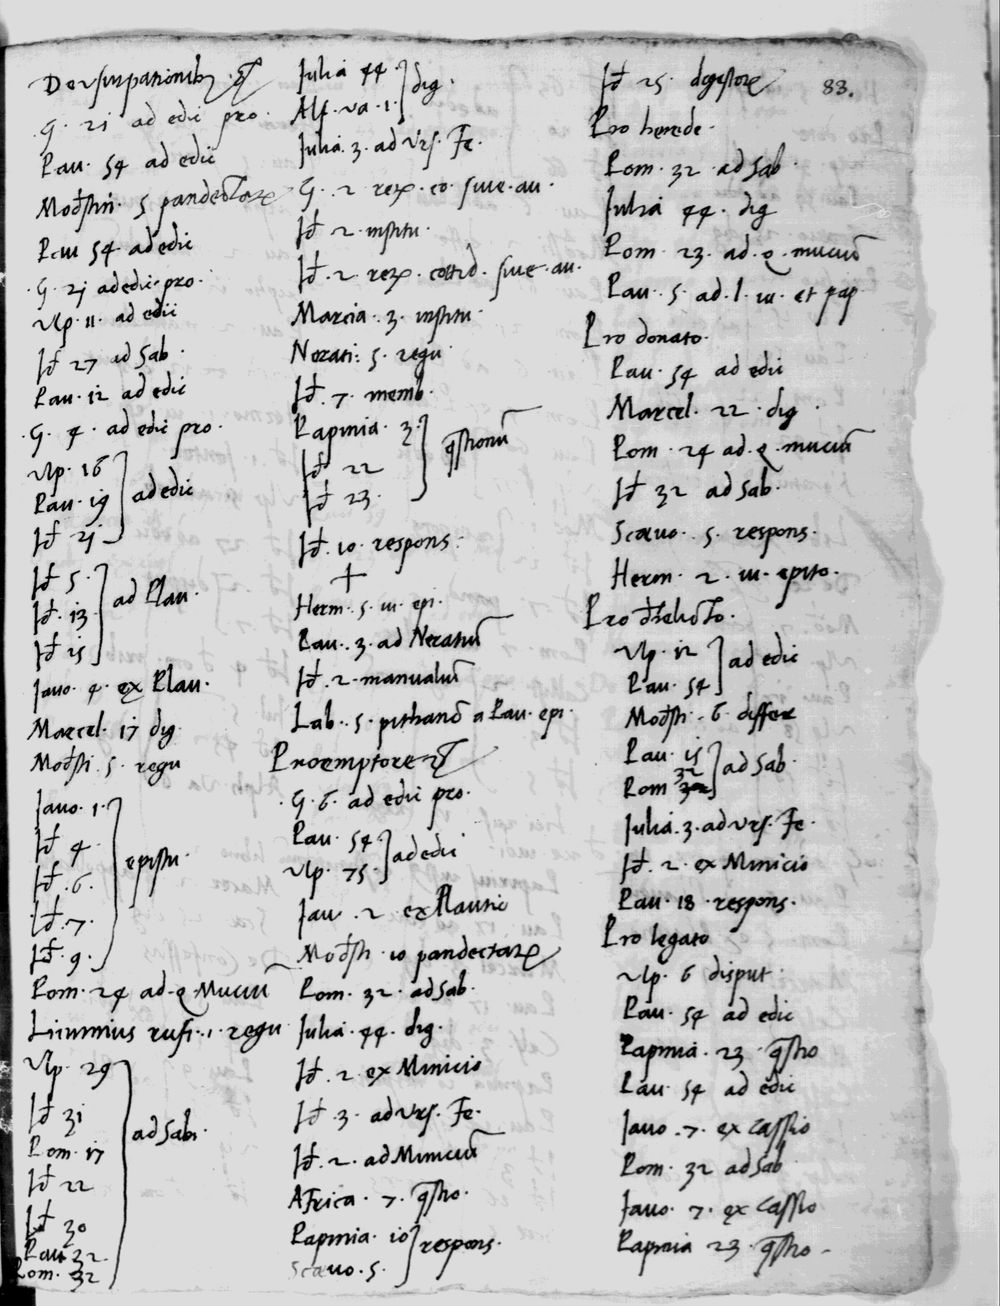 De usurpationib. et
G. 21 ad edic pro.
Pau. 54 ad edic
Modestin. 5 pandectar
Pau 54 ad edic
G. 21 ad edic. pro.
Ulp. 11. ad edic
Id 27 ad Sab.
Pau. 12 ad edic
G. 4. ad edic pro.
Ulp. 16
Pau. 19 ad edic
Id 21
Id 5.
Id. 13 ad Plau.
Id 15
Javo. 4. ex Plau.
Marcel. 17 dig.
Modesti. 5. regu
Javo. 1.
Id 4
Id. 6. epistu.
Id. 7.
Id. 9.
Pom. 24 ad. Q Muciū
Licinnius rufi. 1. regu
Ulp. 29
Id 31
Pom. 17 ad Sabi.
Id 22
Id 30
Pau. 32.
Pom. 32
Julia 44. dig.
Alf. va. 1.
Julia. 3. ad Urs. Fe.
G. 2 rer. co. sive. au.
Id 2. institu.
Id. 2. rer. cottid. sive. au.
Marcia. 3. institu.
Nerati. 5. regu
Id. 7. memb.
Papinia. 3.
Id 22 questionū
Id 23.
Id. 10. respons.
+
Herm. 5. iu. epi.
Pau. 3. ad Neratiū
Id. 2. manualiū
Lab. 5. pithanō a Pau. epi.
Pro emptore et
G. 6. ad edic pro.
Pau. 54. ad edic
Ulp. 75.
Jav. 2 ex Plautio
Modesti. 10 pandectar
Pom. 32. ad Sab.
Julia. 44. dig.
Id. 2 ex Minicio
Id 3. ad Urs. Fe.
Id. 2. ad Miniciū
Africa. 7. questio.
Papinia. 10 respons.
Scævo. 5.
Id 25. digestor
83.
Pro herede.
Pom. 32. ad Sab.
Julia 44. dig
Pom. 23. ad. Q. muciū
Pau. 5. ad. l. iu. et pap
Pro donato.
Pau. 54 ad edic
Marcel. 22. dig.
Pom. 24 ad. Q. muciū
Id 32 ad Sab.
Scævo. 5. respons.
Herm. 2. iu. epito.
Pro derelicto.
Ulp. 12 ad edic
Pau. 54
Modesti. 6. differ
Pau. 15 ad Sab.
Pom 32
Julia. 3. ad Urs. Fe.
Id. 2. ex Minicio
Pau. 18. respons.
Pro legato
Ulp. 6 disput.
Pau. 54 ad edic
Papinia. 23. questio
Pau. 54 ad edic
Javo. 7. ex Cassio
Pom. 32 ad Sab.
Javo. 7. ex Cassio
Papinia 23. questio.